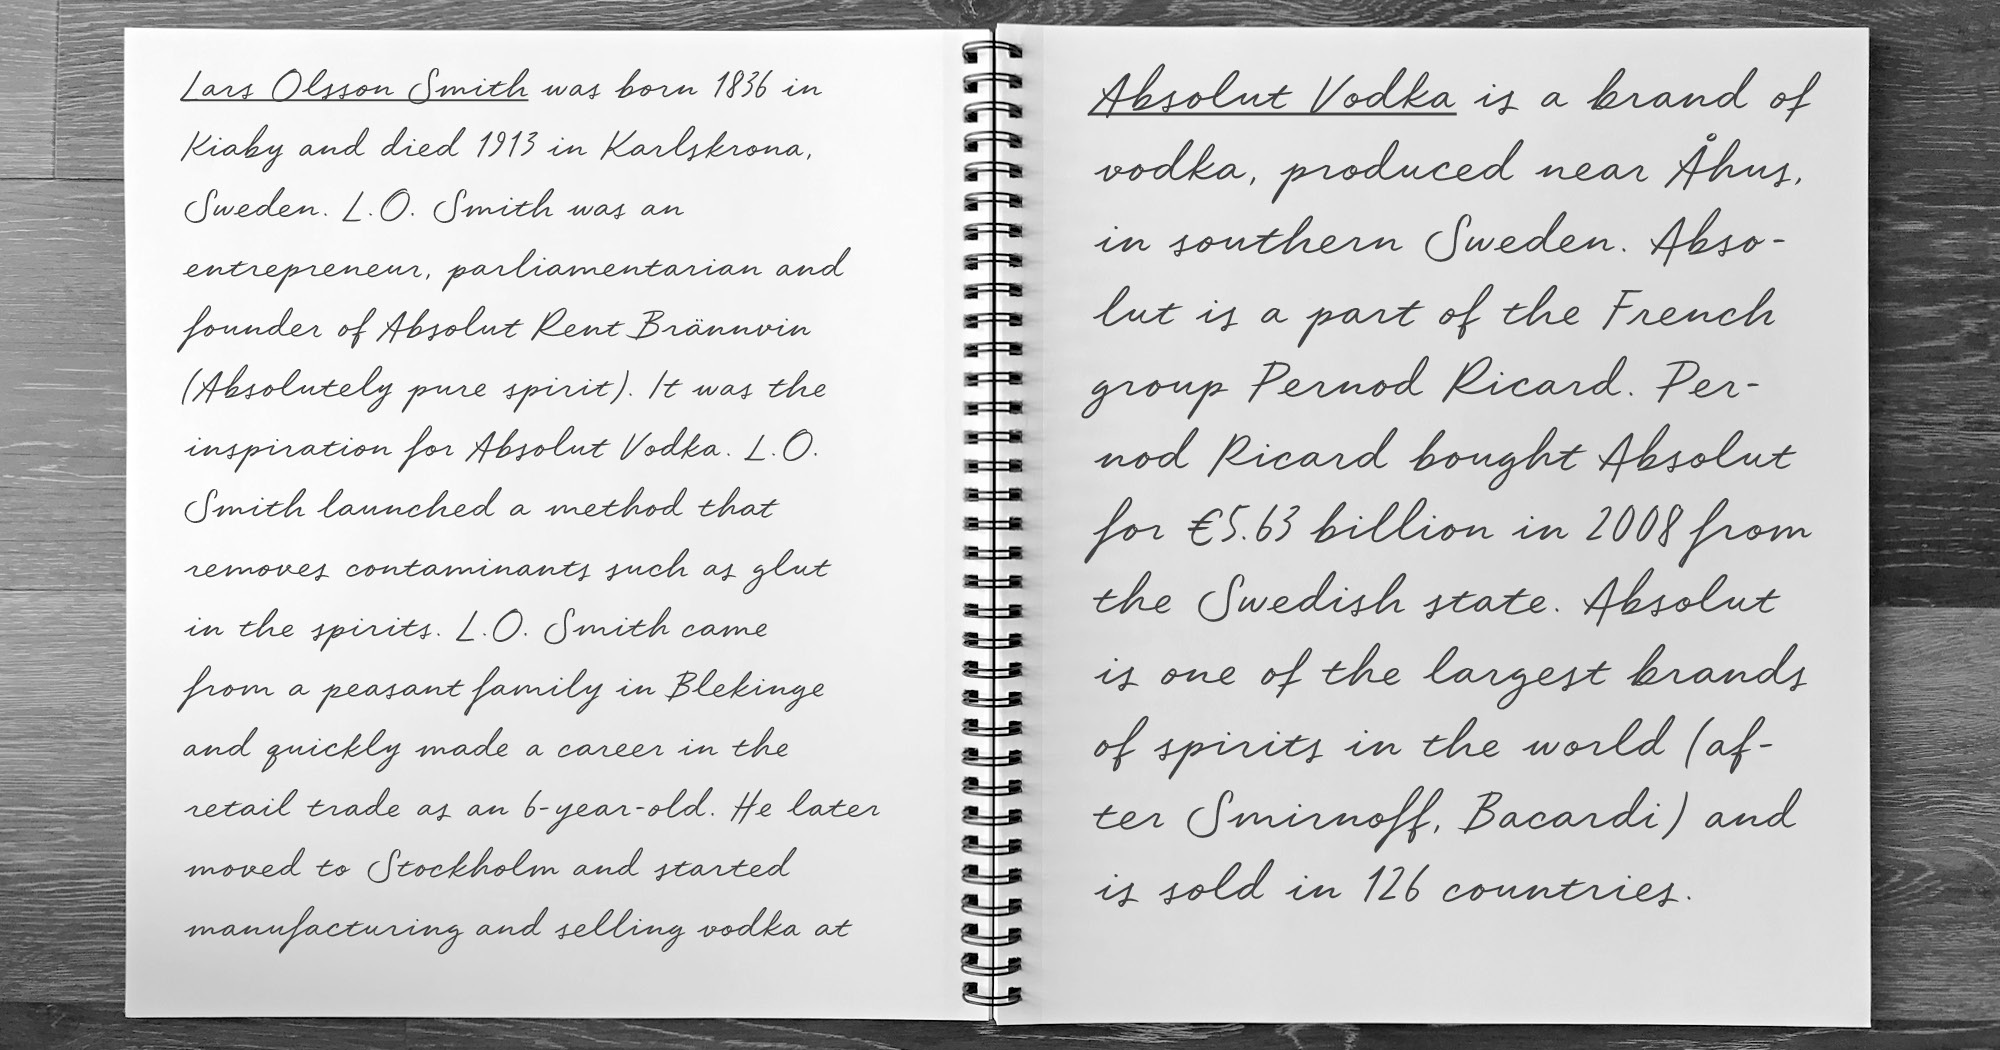 Lars Olsson Smith was born 1836 in
Kiaby and died 1913 in Karlskrona,
Sweden. L.O. Smith was an
entrepreneur, parliamentarian and
founder of Absolut Rent Brännvin
(Absolutely pure spirit). It was the
inspiration for Absolut Vodka. L.O.
Smith launched a method that
removes contaminants such as glut
in the spirits. L.O. Smith came
from a peasant family in Blekinge
and quickly made a career in the
retail trade as an 6-year-old. He later
moved to Stockholm and started
manufacturing and selling vodka at
Absolut Vodka is a brand of
vodka, produced near Åhus,
in southern Sweden. Abso-
lut is a part of the French
group Pernod Ricard. Per-
nod Ricard bought Absolut
for €5.63 billion in 2008 from
the Swedish state. Absolut
is one of the largest brands
of spirits in the world (af-
ter Smirnoff, Bacardi) and
is sold in 126 countries.